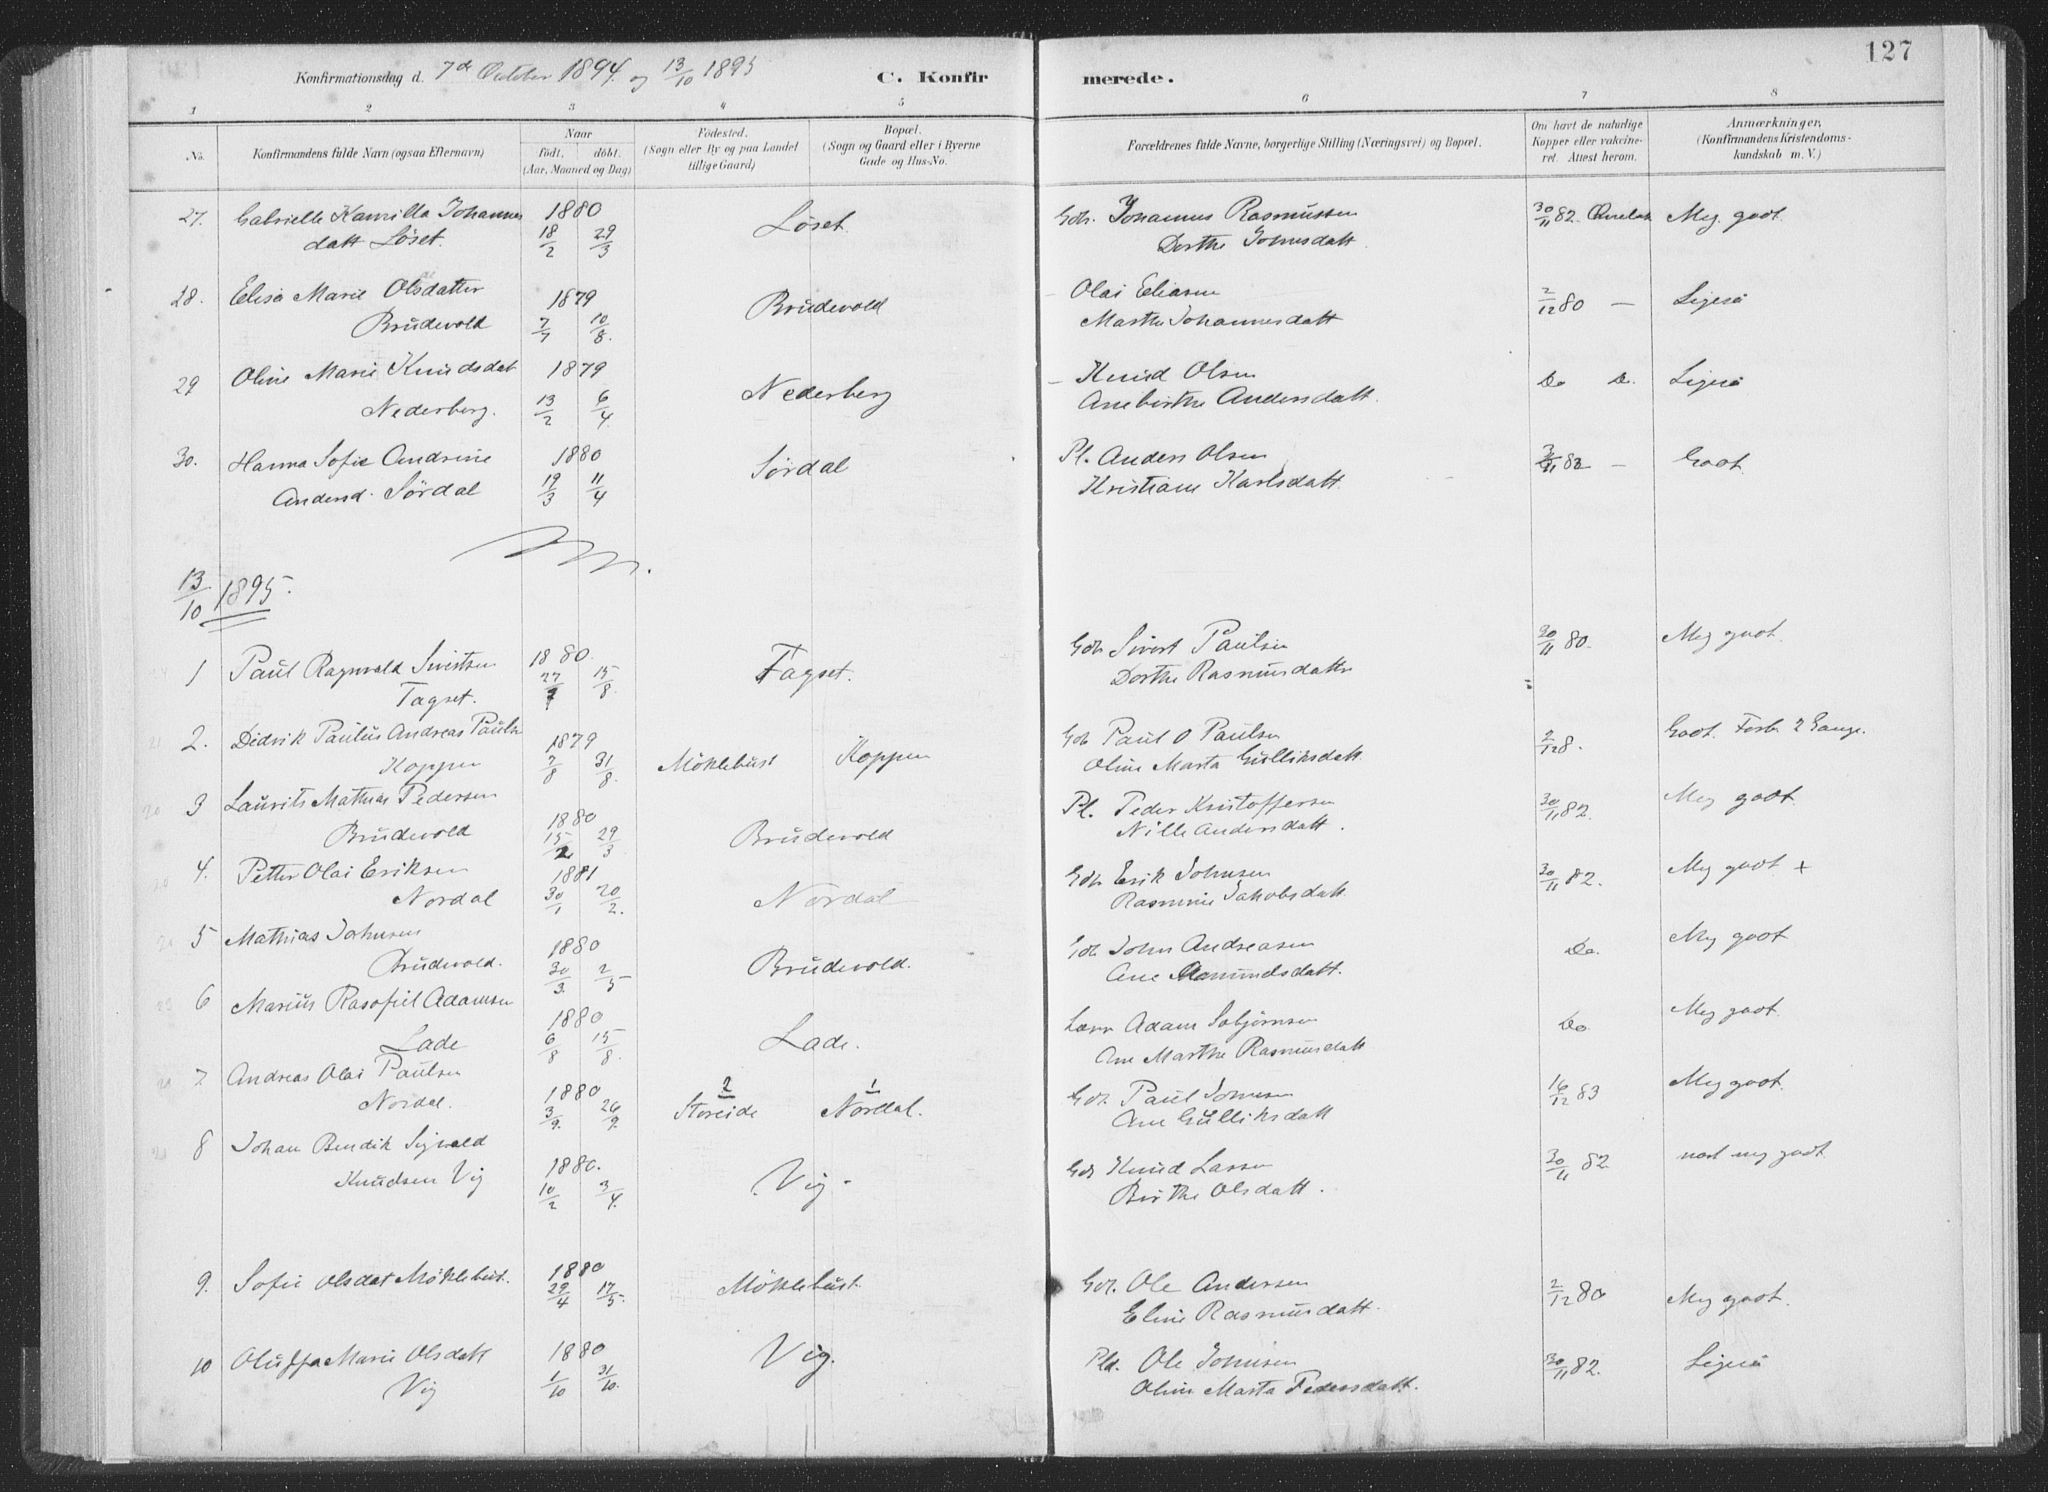 127
Konfirmationsdag d. 7de October 1894. og 13/10 1895
C. Konfirmerede.
1 2 3 4 5 6 7 8
No.
Konfirmandens fulde Navn (ogsaa Efternavn)
Naar
født. døbt.
(Aar, Maaned og Dag)
Fødested.
(Sogn eller By og paa Landet
tillige Gaard)
Bopæl.
(Sogn og Gaard eller i Byerne
Gade og Hus-No.
Forældrenes fulde Navne, borgerlige Stilling (Næringsvei) og Bopæl.
Om havt de naturlige
Kopper eller vakcine-
ret. Attest herom.
Anmærkninger,
(Konfirmandens Kristendoms-
kundskab m. V.)
27. Gabrielle Kamilla Johannes 1880 Løset Gdb. Johannes Rasmussen 30/11 82. Meg. godt.
datt Løset. 18/2 29/3 Dorthe Johnsdatt.
28. Elisa Marie Olsdatter 1879 Brudevold - Olai Eliasen 2/12 80 — Ligeså
Brudevold 7/7 10/8. Marthe Johannesdatt
29 Oline Marie Knudsdat 1879 Nederberg - Knud Olsen Do D. Ligeså
Nederberg. 13/2 6/4. Ane birthe Andersdatt.
30. Hanna Sofie Andrine 1880 Sørdal Pl. Anders Olsen 3/11 82 — Godt.
Andersd. Sørdal 19/3 11/4 Kristiane Karlsdatt
13/10 1895.
1 Paul Ragnvald Sivertsen 1880. Tagset. Gdb Sivert Paulsen 30/11 80. Meg godt.
Tagset. 27/7 15/8. Dorthe Rasmusdatter
2. Didrik Paulus Andreas Pauls 1879 Möklebust Koppen Gdb Paul O Paulsen 2/12 8. Godt. Forb. 2 Gange.
Koppen 7/8 31/8. Oline Marta Gulliksdatt
3 Laurits Mathias Pedersen 1880 Brudevold Pl. Peder Kristoffersen 30/11 82. Meg godt.
Brudevold 15/2 29/3 Nille Andersdatt.
4. Petter Olai Eriksen 1881 Nordal Gdb Erik Johnsen 30/11 82. Meg godt +
Nordal 30/1 20/2. Rasmine Jakobsdatt
5 Mathias Johnsen 1880 Brudevold. Gdb. John Andreasen Do. Meg godt
Brudevold. 30/3. 2/5 Ane Amundsdatt.
6 Marius Rasofiel Adamsen 1880 Lade. Adam Sebjørnsen Do. Meg godt.
Lade 6/8 15/8. Ane Marthe Rasmusdatt
7. Andreas Olai Paulsen 1880 2 Storeide 1 Nordal. Gdb. Paul Johnsen 16/12 83 Meg godt.
Nordal. 3/9. 26/9. Ane Gulliksdatt
8 Johan Bendik Sigvald 1880. Vig. Gdb Knud Lassen 30/11 82. næst meg godt
Knudsen Vig 10/2 3/4. Birthe Olsdatt.
9. Sofie Olsdat Möklebust. 1880 Möklebust. Gdb. Ole Andersen 2/12 80 Meg godt.
22/4 17/5. Eline Rasmusdatt.
10 Oluffa Marie Olsdatt 1880 Vig. Pld. Ole Johnsen 30/11 82. Ligeså
Vig 1/10 31/10. Oline Marta Pedersdatt.